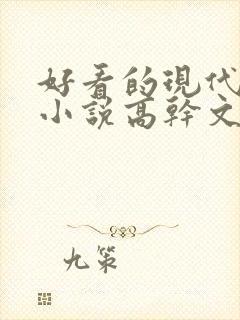 好看的現代
小說高幹文
九策